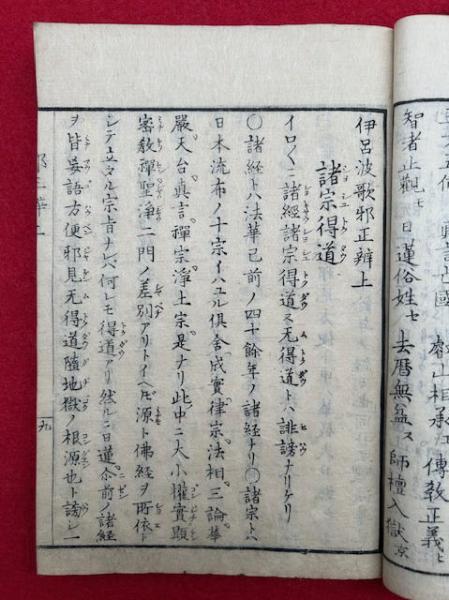 智者止觀モ 日蓮俗姓セ 去暦無盆ス 師檀入獄京
伊呂波歌邪正辨上
諸宗得道
イロ〱ニ諸經諸宗得道ヌ无得道トハ誹謗ナリケリ
〇諸経トハ法華已前ノ四十餘年ノ諸経ナリ〇諸宗トハ
日本流布ノ十宗イハユル倶舎成實律宗法相三論華
嚴天台真言禪宗淨土宗是ナリ此中ニ大小權實顯
密教禪聖淨二門ノ差別アリトイヘ𪜈源ト佛經ヲ所依ト
シテ立タル宗旨ナレハ何レモ得道アリ然ルニ日蓮尒前ノ諸経
ヲ皆妄語方便邪見无得道墮地獄ノ根源也ト謗し一
九